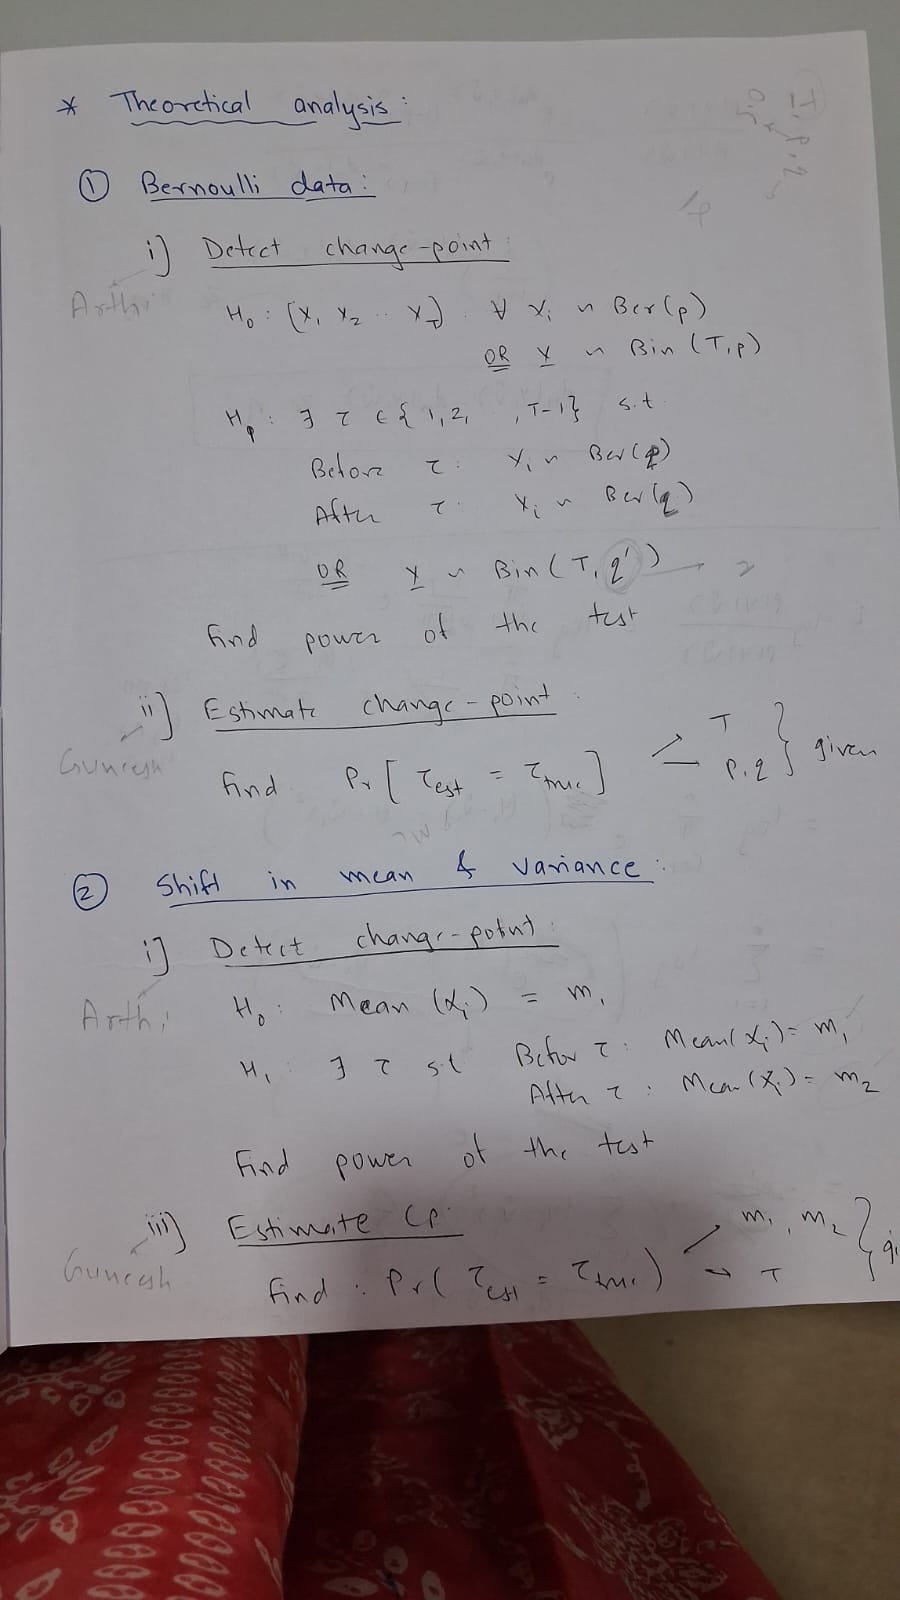 * Theoretical analysis:
① Bernoulli data:
i] Detect change-point:
Arthi
H₀: [X₁ X₂ .. X_T] ∀ Xᵢ ~ Ber(p)
OR X ~ Bin (T,p)
H₁: ∃ τ ∈ {1,2, ,T-1} s.t.
Before τ: Xᵢ ~ Ber(p)
After τ: Xᵢ ~ Ber(q)
OR X ~ Bin (T, q') →
find power of the test
ii] Estimate change-point:
Gunesh
find Pr[τ_est = τ_true] T p,q } given
② Shift in mean & variance:
i] Detect change-point:
Arthi
H₀: Mean (Xᵢ) = m₁
H₁: ∃ τ s.t Before τ: Mean(Xᵢ) = m₁
After τ: Mean(Xᵢ) = m₂
Find power of the test
iii] Estimate CP:
Gunesh
find: Pr(τ_est = τ_true) m₁, m₂ T }